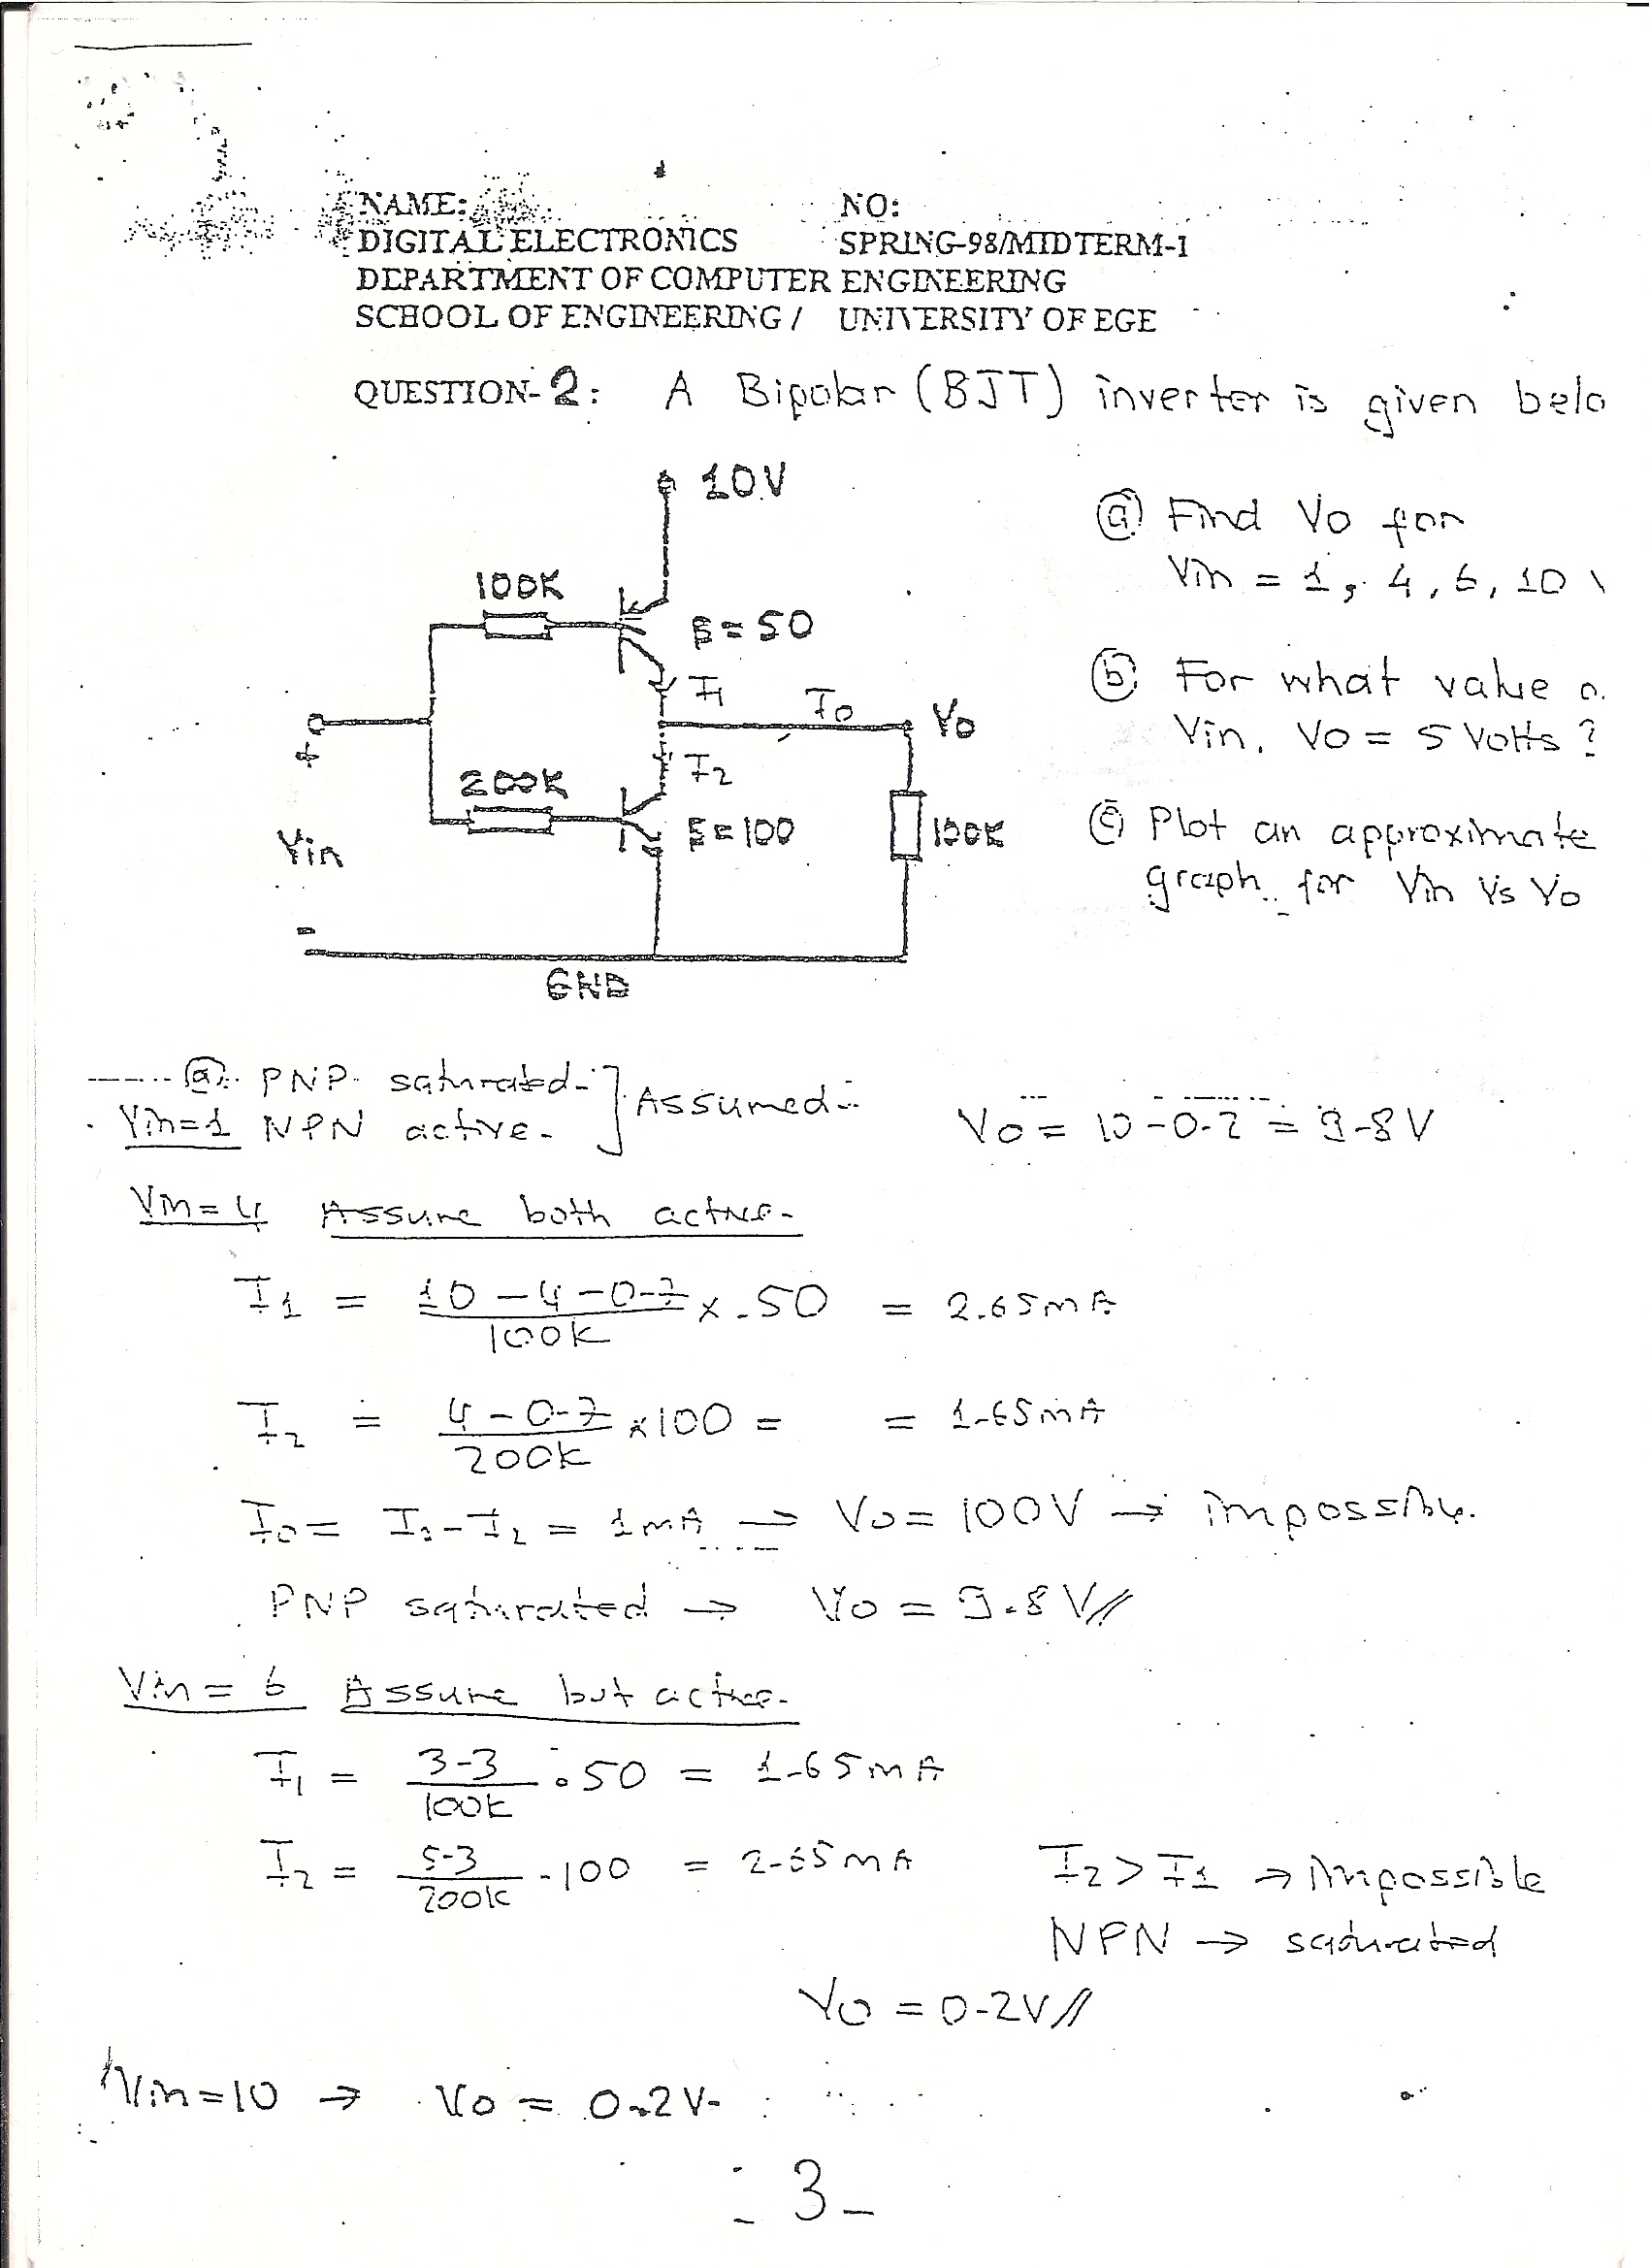 NAME: NO:
DIGITAL ELECTRONICS SPRING-98/MIDTERM-I
DEPARTMENT OF COMPUTER ENGINEERING
SCHOOL OF ENGINEERING / UNIVERSITY OF EGE
QUESTION-2: A Bipolar (BJT) inverter is given belo
10V
100K
β=50
I1
Io
Vo
I2
200K
β=100
100K
+
Vin
-
GND
(a) Find Vo for
Vin = 1, 4, 6, 10 \
(b) For what value o.
Vin, Vo = 5 Volts?
(c) Plot an approximate
graph for Vin Vs Vo
(a) PNP saturated } Assumed
Vin=1 NPN active. Vo = 10-0.2 = 9.8V
Vin=4 Assume both active.
I1 = 10-4-0.7 / 100K x 50 = 2.65mA
I2 = 4-0.7 / 200K x100 = = 1.65mA
Io = I1-I2 = 1mA → Vo = 100V → impossible.
PNP saturated → Vo = 9.8V//
Vin = 6 Assume but active.
I1 = 3.3 / 100K . 50 = 1.65mA
I2 = 5.3 / 200K .100 = 2.65mA I2 > I1 → Impossible
NPN → saturated
Vo = 0.2V//
Vin=10 → Vo = 0.2V.
- 3 -